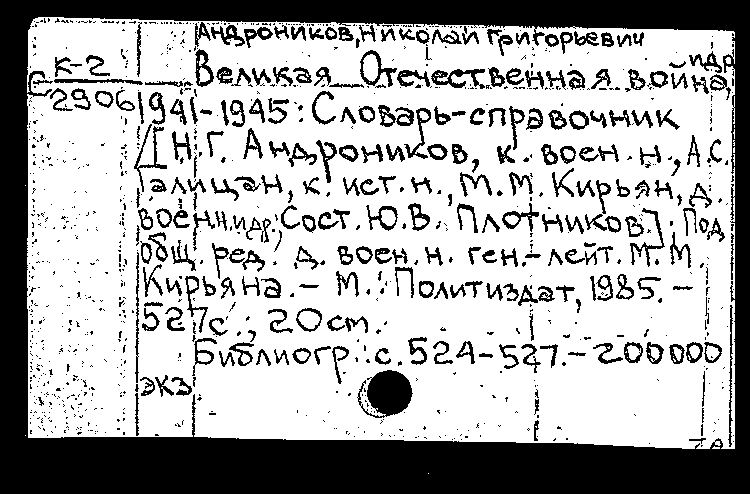 Андроников, Николай Григорьевич
К-2
и др
Великая Отечественная война,
С 2906
1941-1945: Словарь-справочник
/[Н.Г. Андроников, к. воен. н., А.С.
Галицан, к. ист. н., М.М. Кирьян, д.
воен. н. и др.; Сост. Ю.В. Плотников]; Под
общ. ред. д. воен. н. ген.-лейт. М.М.
Кирьяна. - М.: Политиздат, 1985. -
527с.; 20см.
Библиогр.: с. 524-527. - 200000
экз